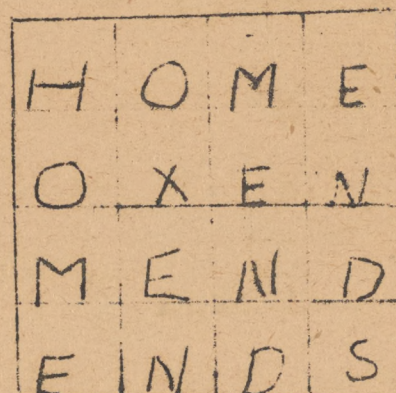 H O M E
O X E N
M E N D
E N D S